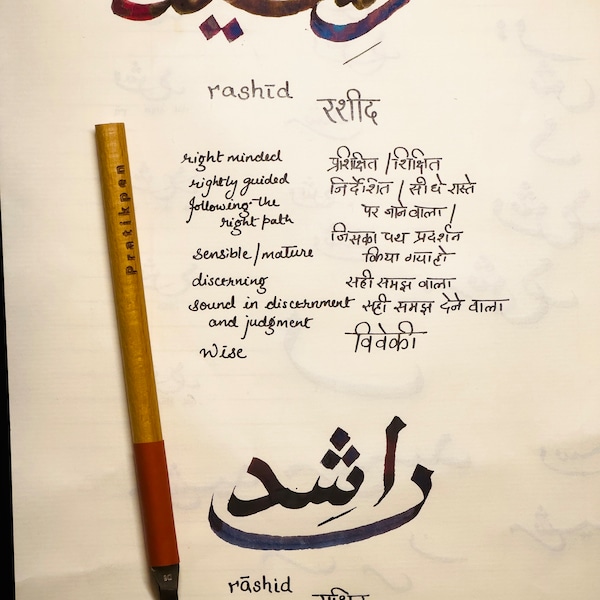 rashīd रशीद
right minded प्रशिक्षित / शिक्षित
rightly guided निर्देशित / सीधे रास्ते
following the पर जाने वाला /
right path जिसका पथ प्रदर्शन
sensible / mature किया गया हो
discerning सही समझ वाला
sound in discernment सही समझ देने वाला
and judgment
wise विवेकी
راشِد
rāshid
Pratikpen